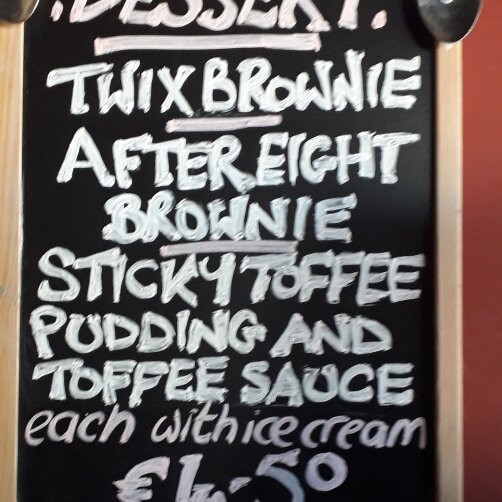 .DESSERT.
TWIX BROWNIE
AFTER EIGHT
BROWNIE
STICKY TOFFEE
PUDDING AND
TOFFEE SAUCE
each with ice cream
€4.50